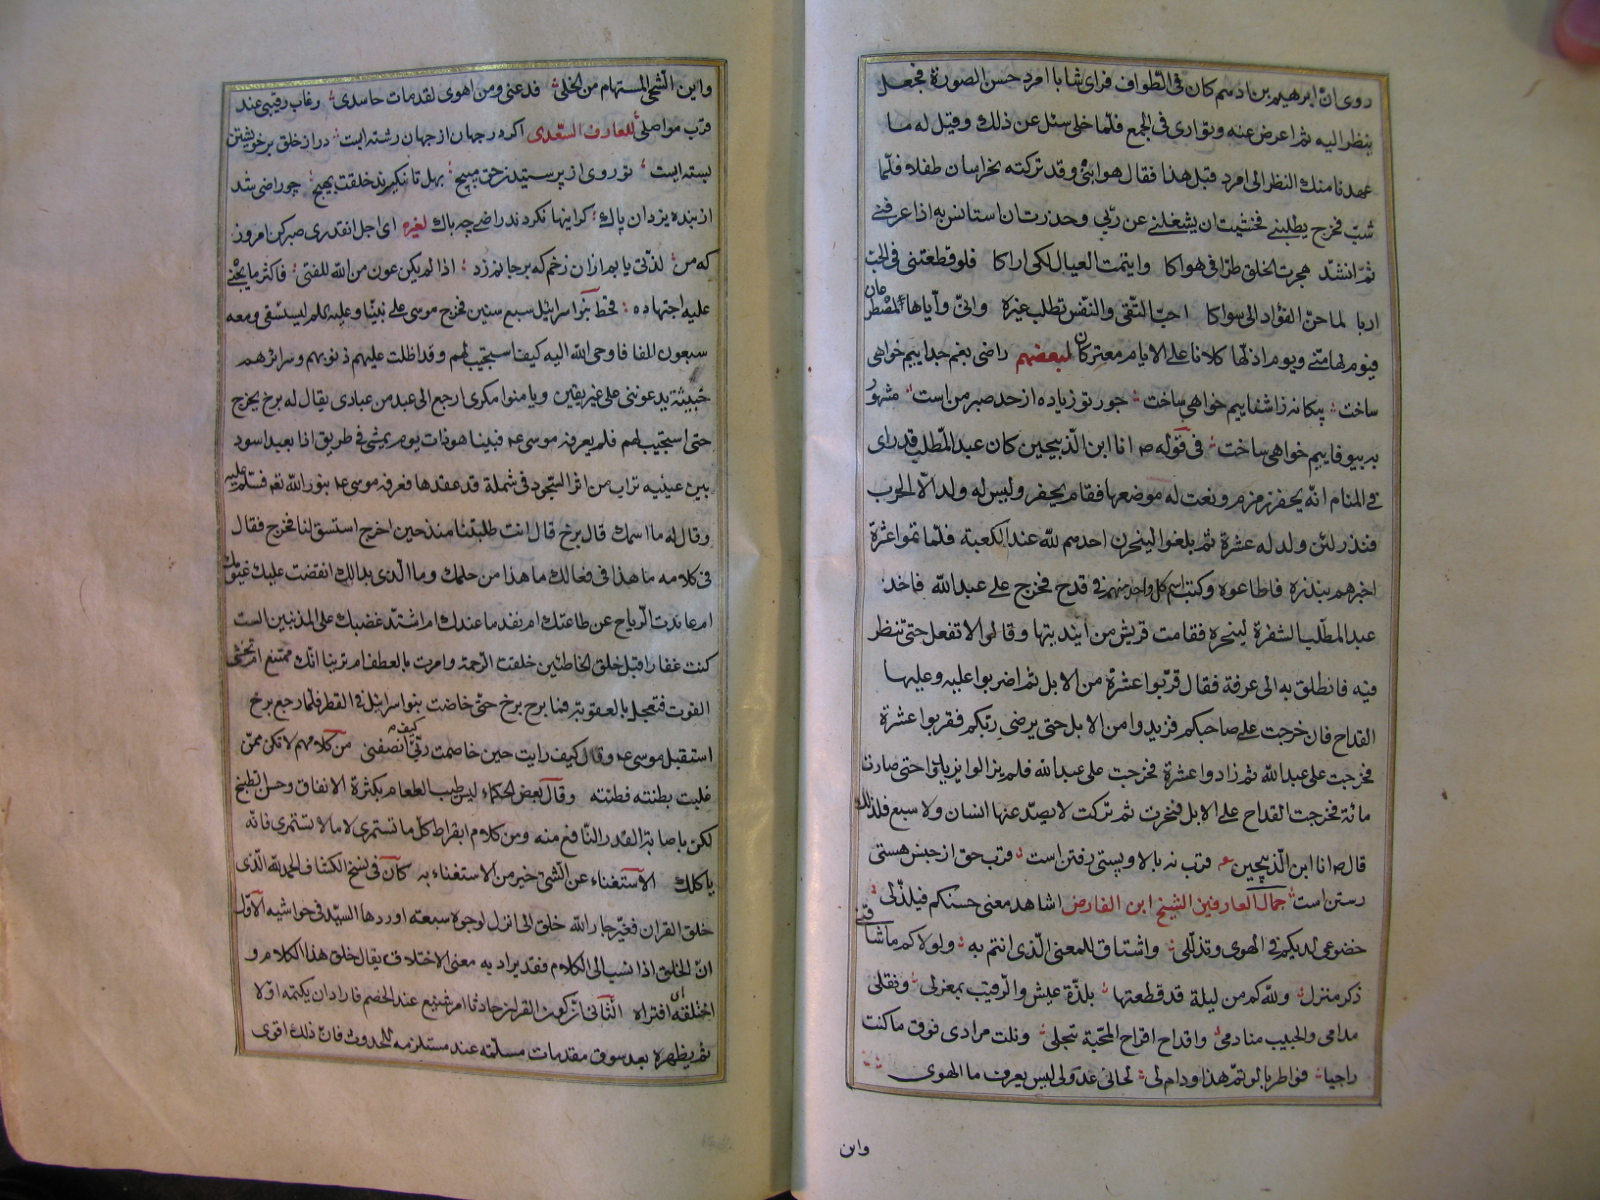 روى ان ابرهيم بن ادهم كان فى الطواف فراى شابا امرد حسن الصورة فجعل
ينظر اليه ثم اعرض عنه وتوارى فى الجمع فلما خلى سئل عن ذلك وقيل له ما
عهدنا منك النظر الى امرد قبل هذا فقال هو ابنى وقد تركته بخراسان طفلا فلما
شب فخرج يطلبنى فخشيت ان يشغلنى عن ربى وحذرت ان استانس به اذا عرفنى
ثم انشد هجرت الخلق طرا فى هواكا وايتمت العيال لكى اراكا فلو قطعتنى فى الحب
اربا لما حن الفؤاد الى سواكا احب التقى والنفس تطلب غيره وانى واياها لمصطرعان
فيوم لها منى ويوم اذلها كلانا على الايام معتركان لبعضهم راضى بغم جداييم خواهى
ساخت بيكانه ز اشناييم خواهى ساخت جور تو زياده از حد صبر من است مشهور
به بيوفاييم خواهى ساخت فى قوله ص انا ابن الذبيحين كان عبد المطلب قد راى
فى المنام انه يحفر زمزم ونعت له موضعها فقام يحفر وليس له ولد الا الحرب
فنذر لئن ولد له عشرة ثم بلغوا لينحرن احدهم لله عند الكعبة فلما تموا عشرة
اخبرهم بنذره فاطاعوه وكتب اسم كل واحد منهم فى قدح فخرج على عبد الله فاخذ
عبد المطلب الشفرة لينحره فقامت قريش من انديتها وقالوا لا تفعل حتى تنظر
فيه فانطلق به الى عرفة فقال قربوا عشرة من الابل ثم اضربوا عليه وعليها
القداح فان خرجت على صاحبكم فزيدوا من الابل حتى يرضى ربكم فقربوا عشرة
فخرجت على عبد الله ثم زادوا عشرة فخرجت على عبد الله فلم يزالوا حتى صارت
مائة فخرجت القداح على الابل فنحرت ثم تركت لا يصد عنها انسان ولا سبع فلذلك
قال ص انا ابن الذبيحين قرب نه بالا وپستى رفتن است قرب حق از حبس هستى
رستن است جمال العارفين الشيخ ابن الفارض اشاهد معنى حسنكم فيلذ لى
خضوعى لديكم فى الهوى وتذللى واشتاق للمعنى الذى انتم به ولولاكم ما شاقنى
ذكر منزل ولله كم من ليلة قد قطعتها بلذة عيش والرقيب بمعزل ونقلى
مدامى والحبيب منادمى واقداح افراح المحبة تنجلى ونلت مرادى فوق ما كنت
راجيا فواطربا لو تم هذا ودام لى لحانى عذولى ليس يعرف ما الهوى
واين
واين الشجى المستهام من الخلى فدعنى ومن اهوى لقد مات حاسدى وغاب رقيبى عند
قرب مواصلى للعارف السعدى اكر در جهان از جهان رسته ايست در از خلق بر خويشتن
بسته ايست تو روى از پرستيدن حق مپيچ بهل تا نگيرند خلقت بهيچ چو راضى شد
از بنده يزدان پاك گر اينها نكردند راضى چه باك لغيره اى اجل انقدرى صبر كن امروز
كه من لذتى يابم از ان زخم كه بر جانم زد اذا لم يكن عون من الله للفتى فاكثر ما يجنى
عليه اجتهاده قحط بنو اسرائيل سبع سنين فخرج موسى على نبينا وعليه السلم ليستسقى ومعه
سبعون الفا فاوحى الله اليه كيف استجيب لهم وقد اظلت عليهم ذنوبهم وسرائرهم
خبيثة يدعوننى على غير يقين ويامنوا مكرى ارجع الى عبد من عبادى يقال له برخ يخرج
حتى استجيب لهم فلم يعرفه موسى عم فبينا هو ذات يوم يمشى فى طريق اذا بعبد اسود
بين عينيه تراب من اثر السجود فى شملة قد عقدها فعرفه موسى عم بنور الله تعم فسلم عليه
وقال له ما اسمك قال برخ قال انت طلبتنا منذ حين اخرج استسق لنا فخرج فقال
فى كلامه ما هذا فى فعالك ما هذا من حلمك وما الذى بدالك انقضت عليك غيوثك
ام عاندت الرياح عن طاعتك ام نفد ما عندك ام اشتد غضبك على المذنبين الست
كنت غفارا قبل خلق الخاطئين خلقت الرحمة وامرت بالعطف ام ترينا انك ممتنع ام تخشى
الفوت فتعجل بالعقوبة فما برح برخ حتى خاضت بنو اسرائيل فى القطر فلما رجع برخ
استقبل موسى عم وقال كيف رايت حين خاصمت ربى كيف انصفنى من كلامهم لا تكن ممن
غلبت بطنته فطنته وقال بعض الحكماء ليس طيب الطعام بكثرة الانفاق وحسن الطبخ
لكن باصابة القدر النافع منه ومن كلام ابقراط كل ما تستمرى لا ما لا تستمرى فانه
ياكلك الاستغناء عن الشئ خير من الاستغناء به كان فى نسخ الكشاف الحمد لله الذى
خلق القران فغيره جار الله خلق الى انزل لوجوه سبعة اوردها السيد فى حواشيه الاول
ان الخلق اذا نسب الى الكلام فقد يراد به معنى الاختلاق يقال خلق هذا الكلام و
اختلقه اى افتراه الثانى ان كون القران حادثا امر شنيع عند الخصم فاراد ان يكتمه اولا
ثم يظهره بعد سوق مقدمات مسلمة عنده مستلزمة للحدوث فان ذلك اقوى